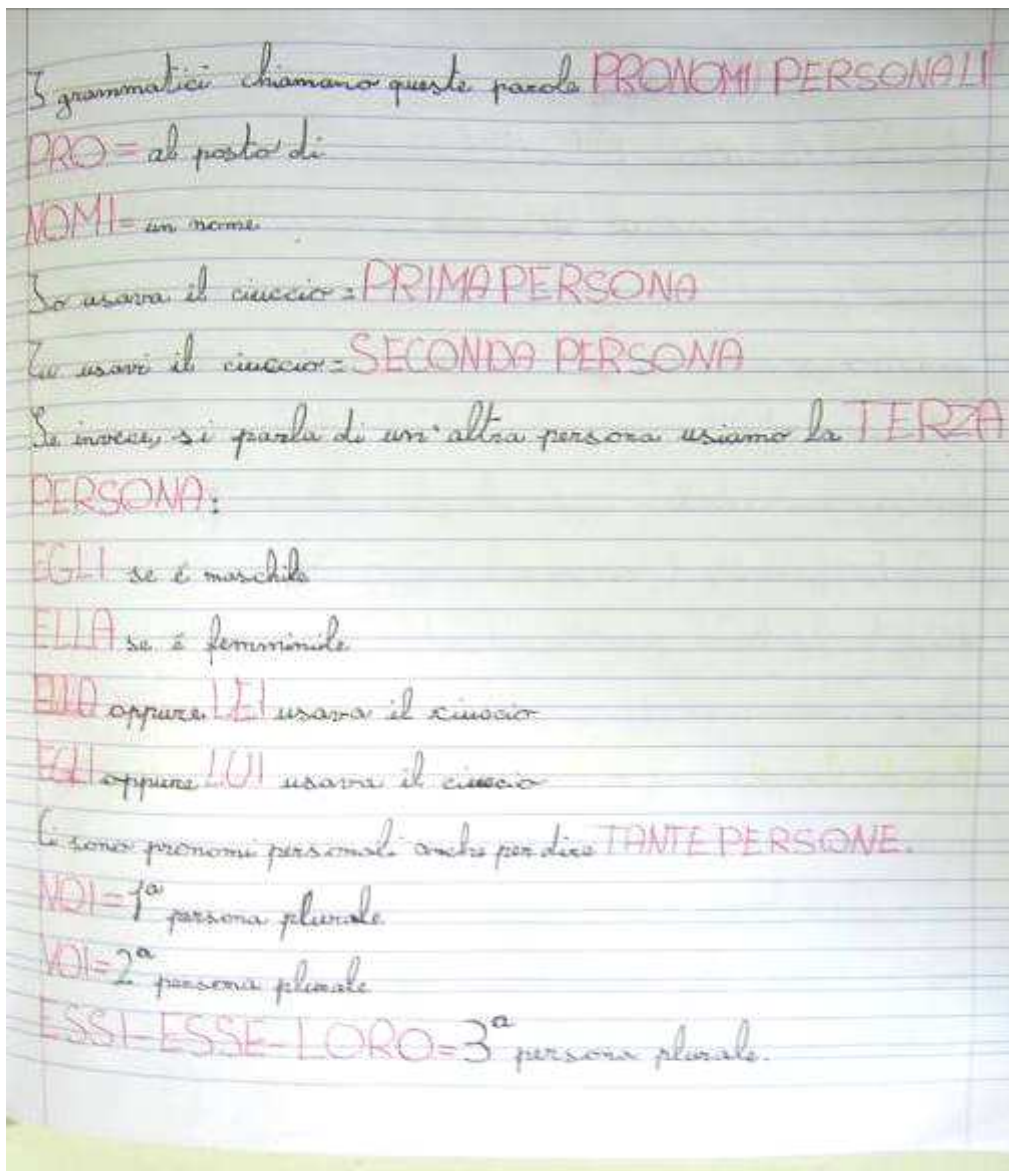 I grammatici chiamano queste parole PRONOMI PERSONALI
PRO = al posto di
NOMI = un nome
Io usavo il ciuccio = PRIMA PERSONA
Tu usavi il ciuccio = SECONDA PERSONA
Se invece, si parla di un'altra persona usiamo la TERZA
PERSONA:
EGLI se é maschile
ELLA se é femminile
ELLA oppure LEI usava il ciuccio
EGLI oppure LUI usava il ciuccio
Ci sono pronomi personali anche per dire TANTE PERSONE.
NOI = 1ª persona plurale
VOI = 2ª persona plurale
ESSI-ESSE-LORO = 3ª persona plurale.